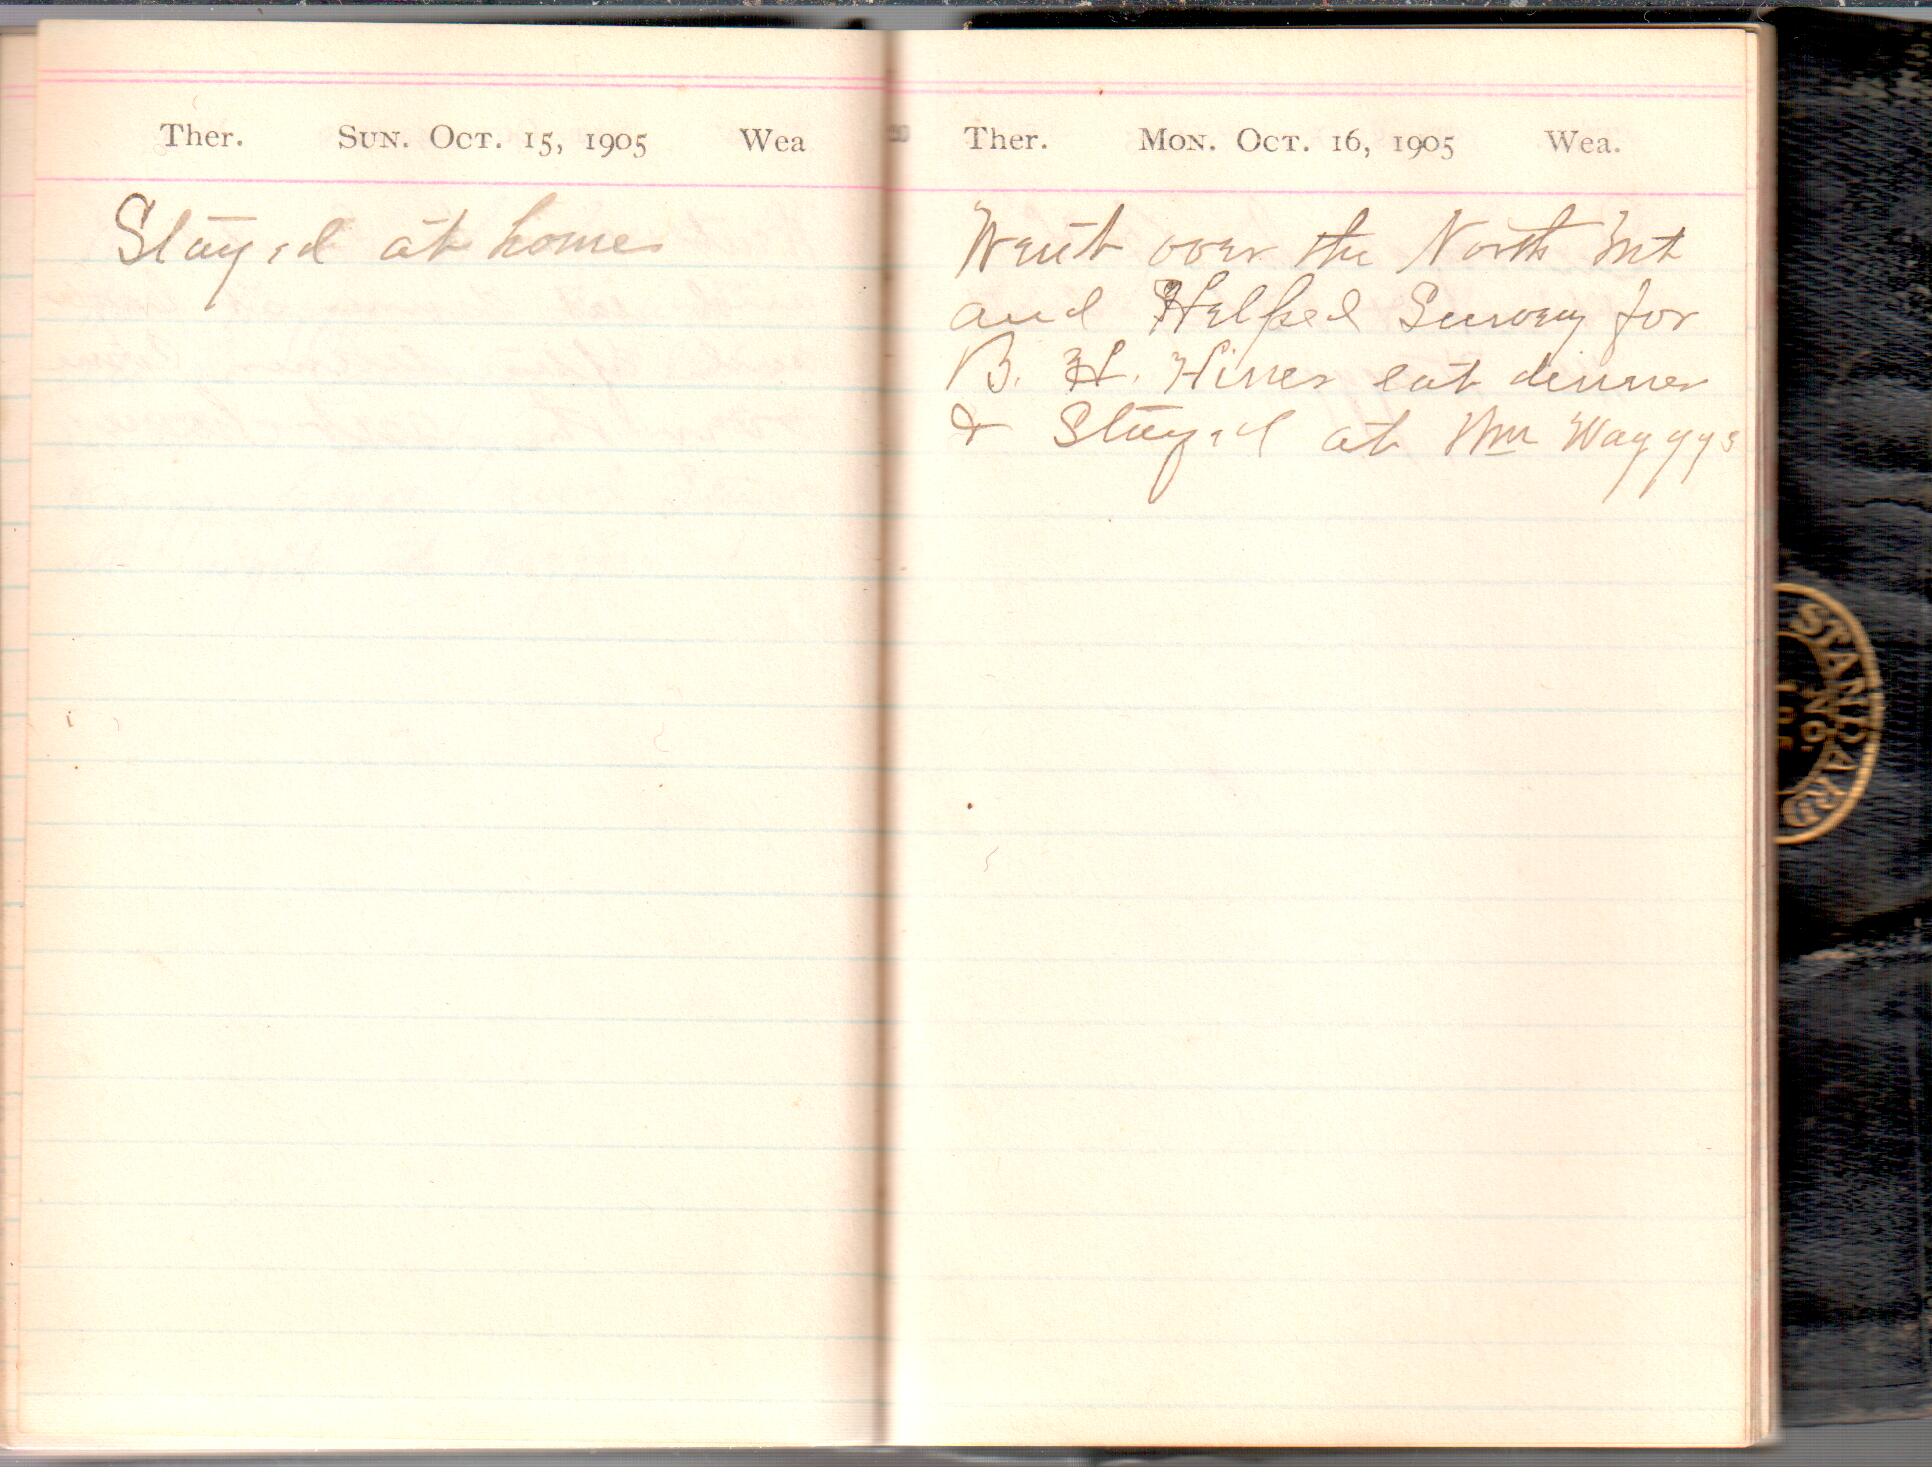 Ther. Sun. Oct. 15, 1905 Wea
Stayed at home
Ther. Mon. Oct. 16, 1905 Wea.
Went over the North Mt
and Helped Survey for
B. H. Hiner eat dinner
& Stayed at Wm Waggys
STANDARD
NO.